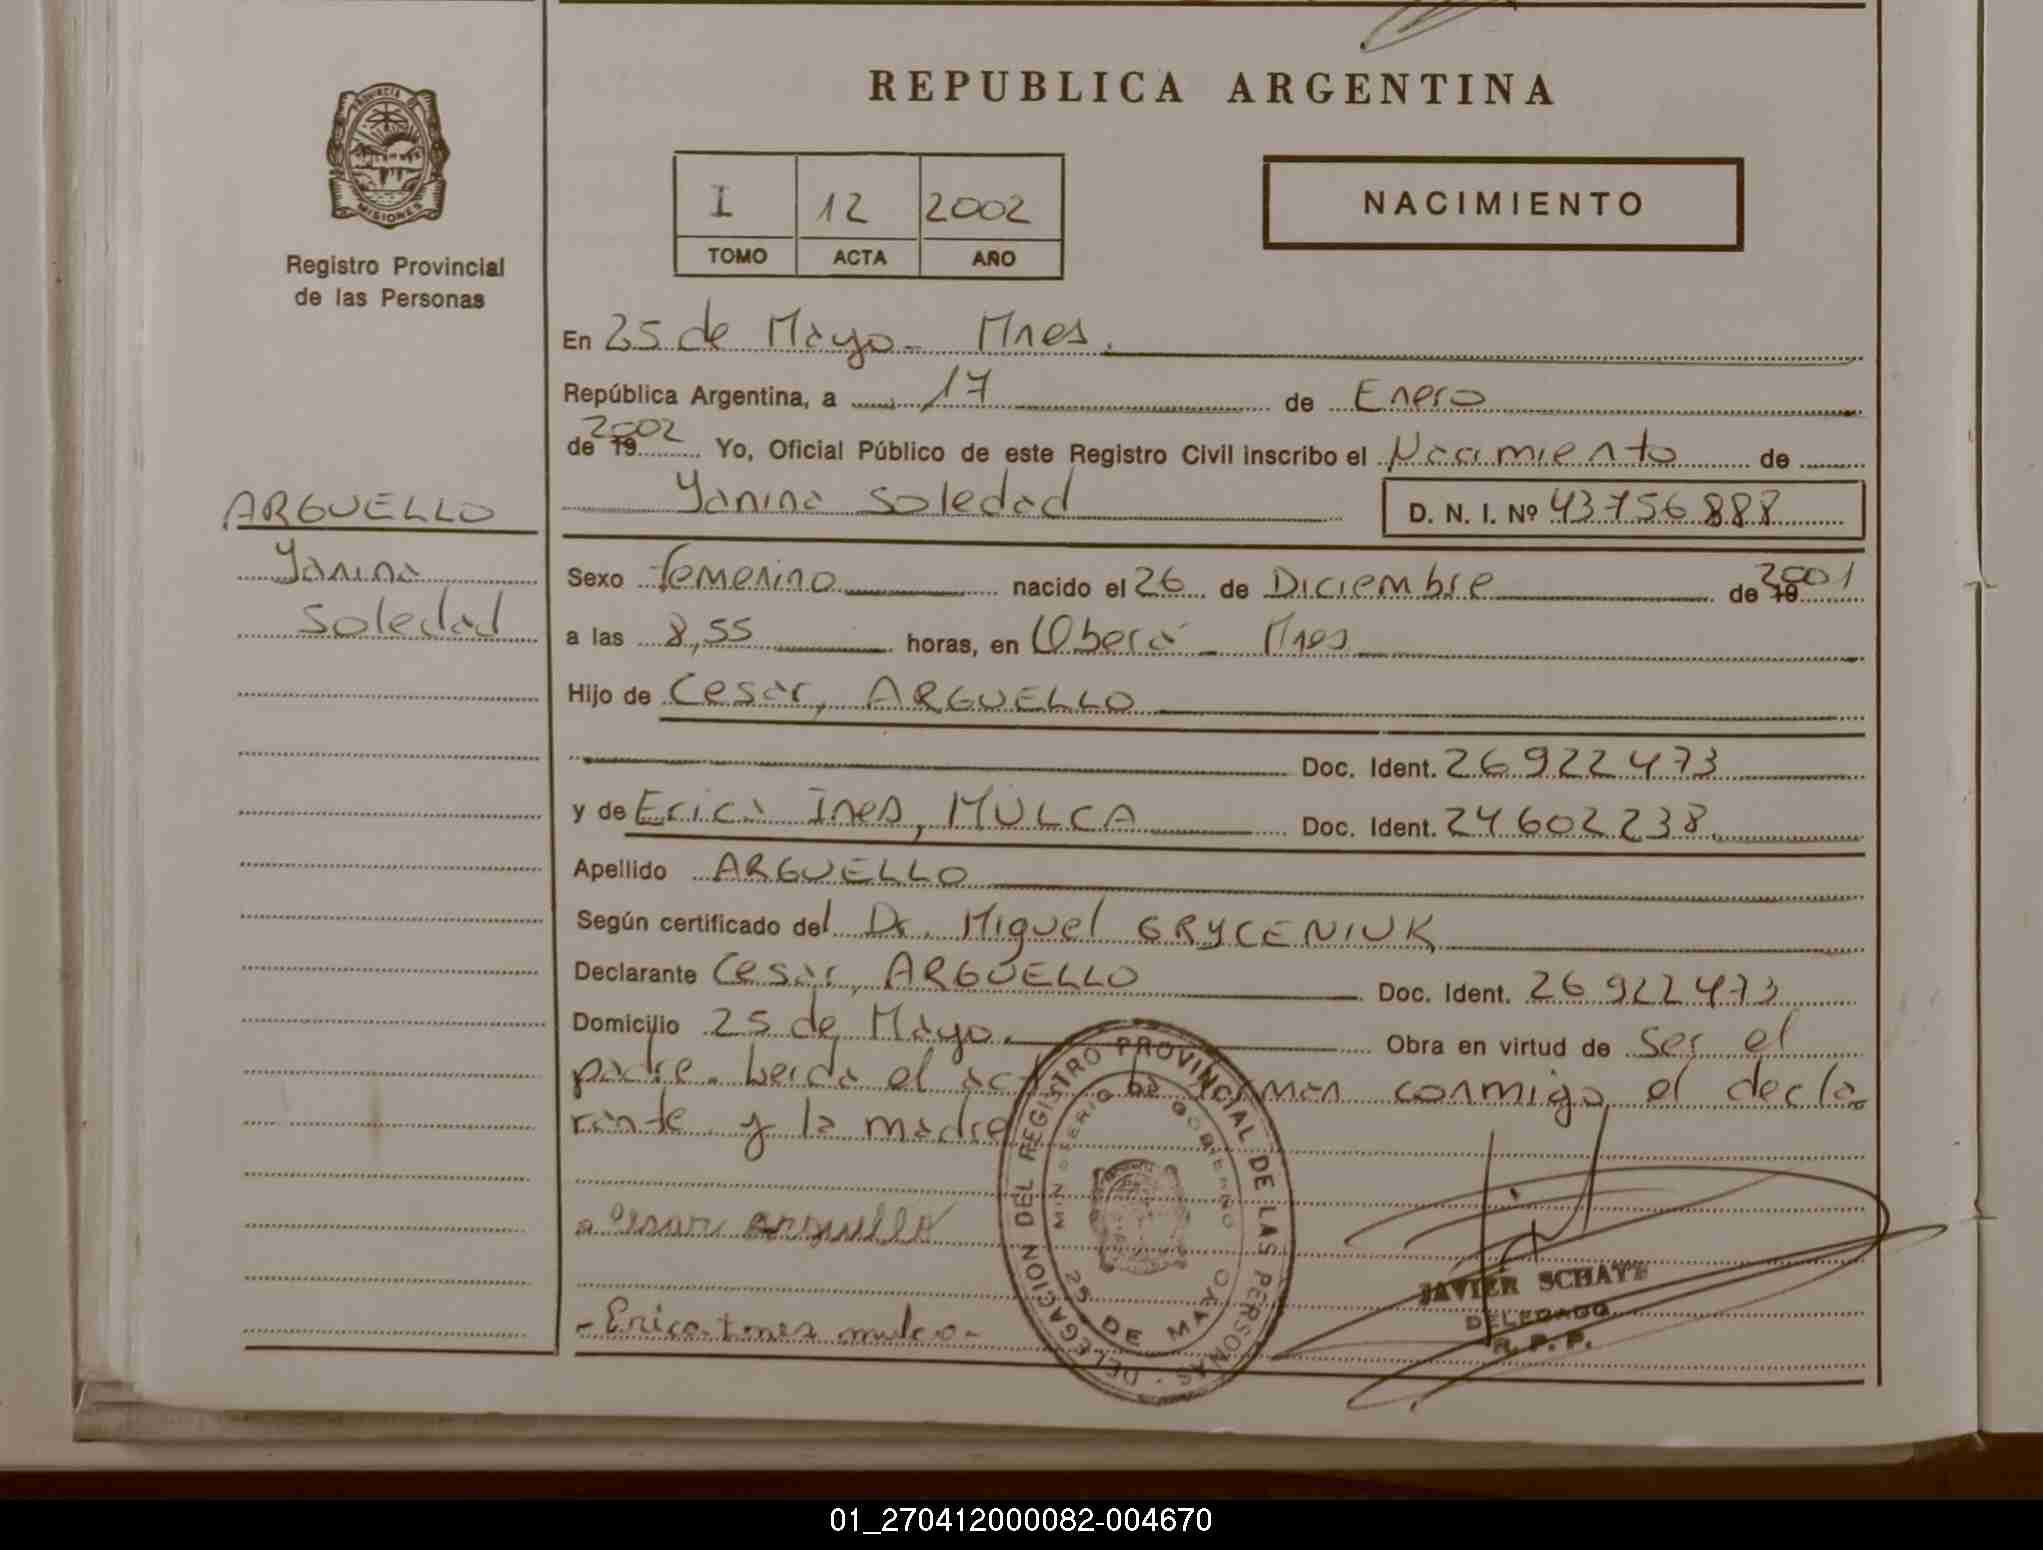 REPUBLICA ARGENTINA
PROVINCIA DE
MISIONES
Registro Provincial
de las Personas
I 12 2002
TOMO ACTA AÑO
NACIMIENTO
En 25 de Mayo - Mnes.
República Argentina, a 17 de Enero
de 19 2002 Yo, Oficial Público de este Registro Civil inscribo el Nacimiento de
Yanina Soledad D. N. I. Nº 43756888
ARGUELLO
Yanina
Soledad
Sexo femenino nacido el 26 de Diciembre de 19 2001
a las 8,55 horas, en Oberá - Mnes
Hijo de Cesar, ARGUELLO
Doc. Ident. 26922473
y de Erica Ines, MULCA Doc. Ident. 24602238
Apellido ARGUELLO
Según certificado del Dr. Miguel GRYCENIUK
Declarante Cesar, ARGUELLO Doc. Ident. 26922473
Domicilio 25 de Mayo. Obra en virtud de ser el
padre. Leida el acta la firman conmigo el decla-
rante y la madre
Cesar Arguello
- Erica Ines mulca -
DELEGACION DEL REGISTRO PROVINCIAL DE LAS PERSONAS
MINISTERIO DE GOBIERNO
25 DE MAYO
JAVIER SCHAYE
DELEGADO
R. P. P.
01_270412000082-004670